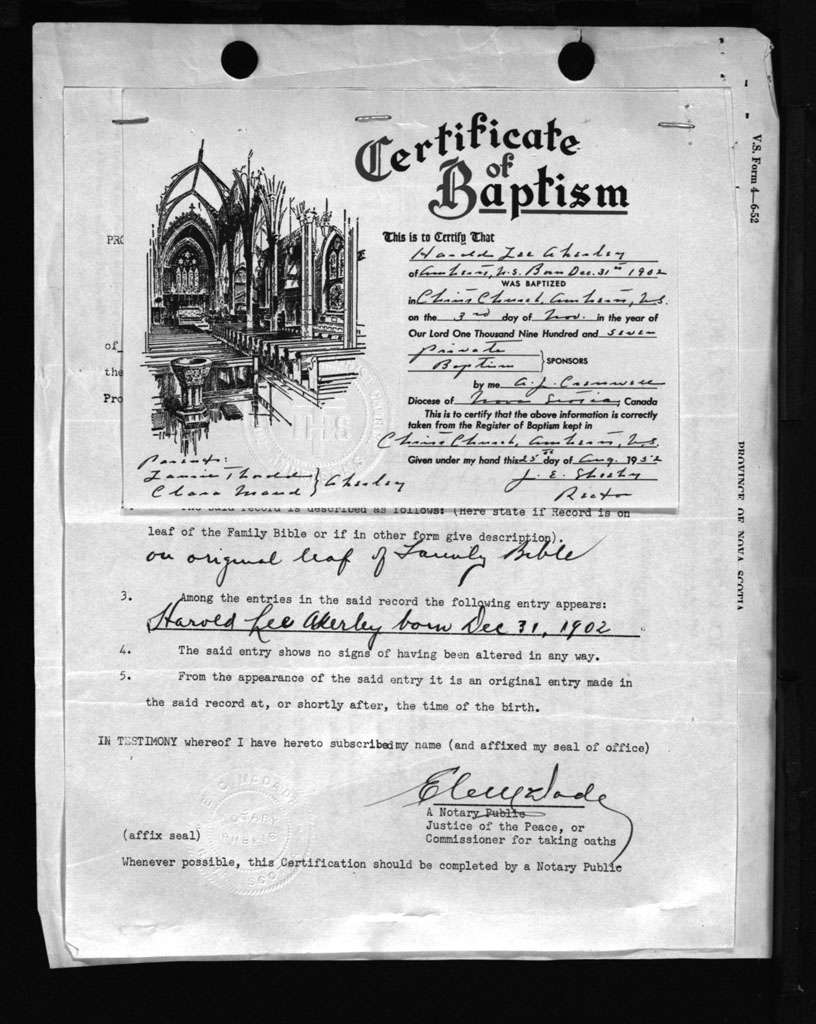 Certificate
of
Baptism
This is to Certify That
Harold Lee Akerley
of Amherst, N.S. Born Dec. 31st 1902
WAS BAPTIZED
in Christ Church, Amherst, N.S.
on the 3rd day of Nov. in the year of
Our Lord One Thousand Nine Hundred and seven
Private
Baptism } SPONSORS
by me A. J. Cresswell
Diocese of Nova Scotia, Canada
This is to certify that the above information is correctly
taken from the Register of Baptism kept in
Christ Church, Amherst, N.S.
Given under my hand this 25th day of Aug. 1952
J. E.
Rector
Parents:
Clara Maud } Akerley
PRO
of
the
Pro
The said record is described as follows: (Here state if Record is on
leaf of the Family Bible or if in other form give description).
on original leaf of Family Bible
3. Among the entries in the said record the following entry appears:
Harold Lee Akerley born Dec 31, 1902
4. The said entry shows no signs of having been altered in any way.
5. From the appearance of the said entry it is an original entry made in
the said record at, or shortly after, the time of the birth.
IN TESTIMONY whereof I have hereto subscribed my name (and affixed my seal of office)
A Notary Public
Justice of the Peace, or
(affix seal) Commissioner for taking oaths
Whenever possible, this Certification should be completed by a Notary Public
NOTARY
PUBLIC
V.S. Form 4—6-52
PROVINCE OF NOVA SCOTIA